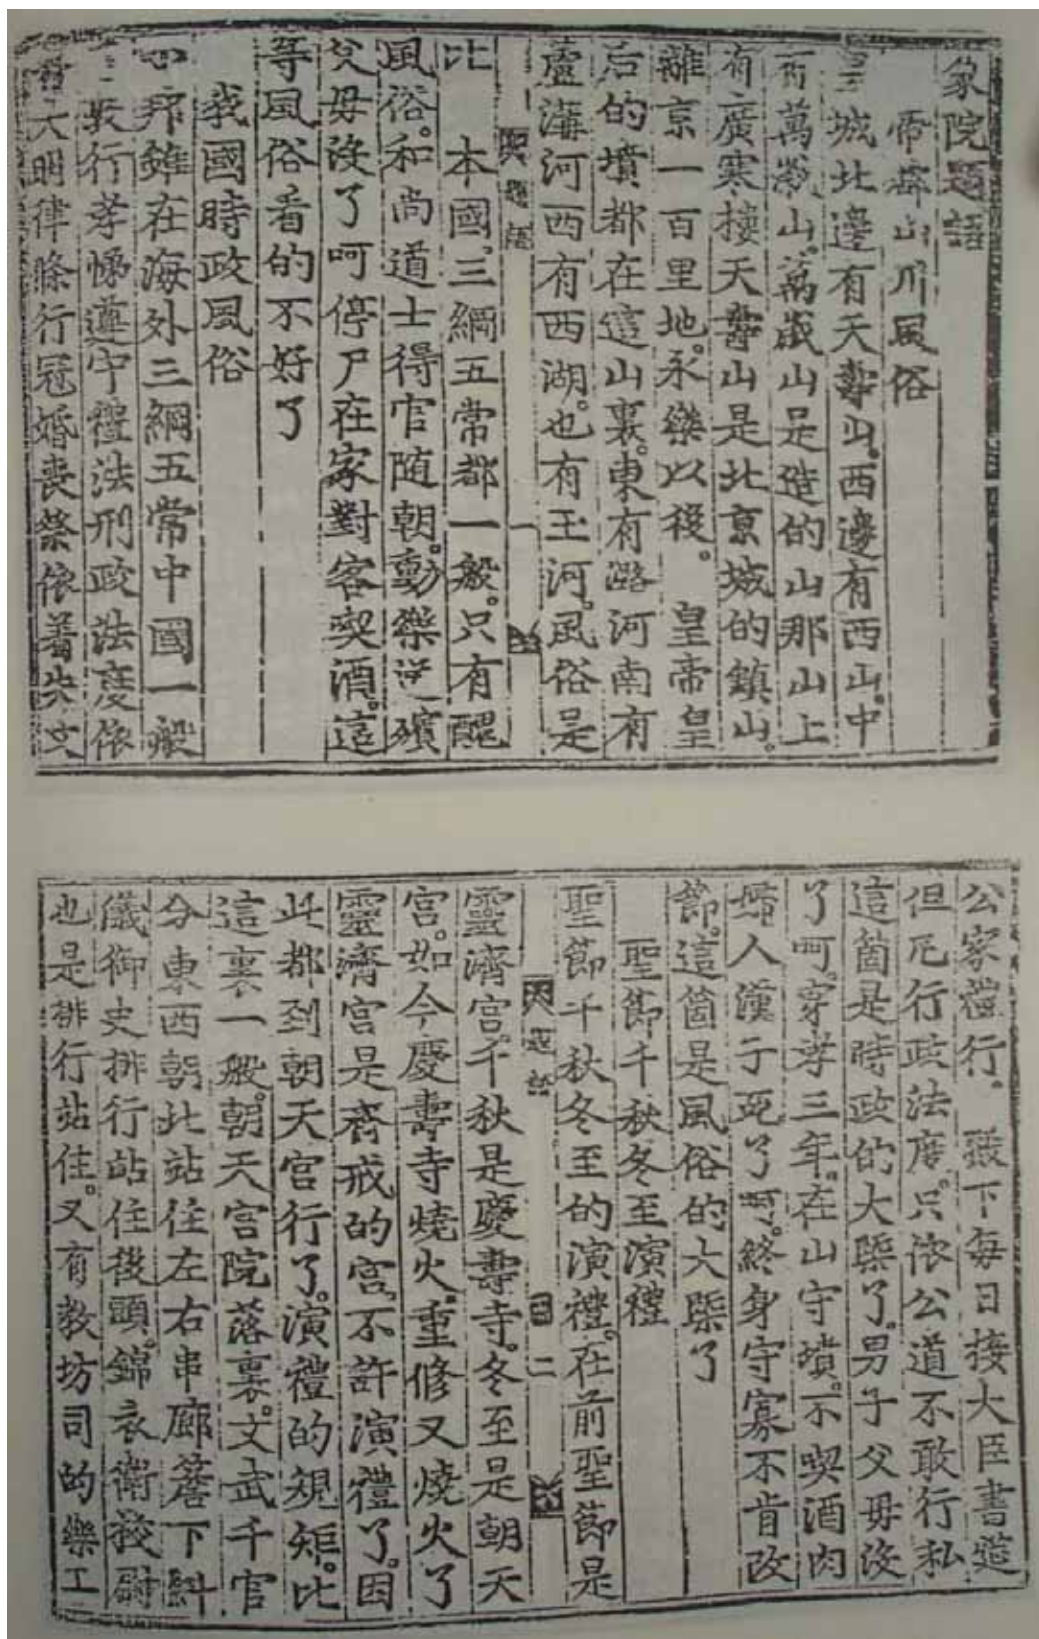 象院題語
帝都山川風俗
皇城北邊有天壽山。西邊有西山。中
有萬歲山。萬歲山是造的山那山上
有廣寒樓天壽山是北京城的鎮山。
離京一百里地。永樂以後。皇帝皇
后的墳都在這山裏。東有潞河南有
蘆溝河西有西湖。也有玉河。風俗是
比 本國。三綱五常都一般。只有醜
風俗。和尚道士得官随朝。動樂送殯
父母沒了呵停尸在家對客喫酒。這
等風俗看的不好了
我國時政風俗
小邦雖在海外三綱五常中國一般
敬行孝悌遵守禮法刑政法度依
着大明律條行冠婚喪祭依着朱文
公家禮行。殿下每日接大臣書筵
但凡行政法度。只依公道不敢行私
這箇是時政的大槩了。男子父母沒
了呵。穿孝三年。在山守墳。不喫酒肉
婦人漢子死了呵。終身守寡不肯改
節。這箇是風俗的大槩了
聖節千秋冬至演禮
聖節千秋冬至的演禮。在前聖節是
靈濟宮。千秋是慶壽寺。冬至是朝天
宮。如今慶壽寺燒火。重修又燒火了
靈濟宮是齊戒的宮。不許演禮了。因
此都到朝天宮行了。演禮的規矩。比
這裏一般。朝天宮院落裏。文武千官
分東西朝北站住左右串廊簷下糾
儀御史排行站住後頭。錦衣衛校尉
也是排行站住。又有教坊司的樂工